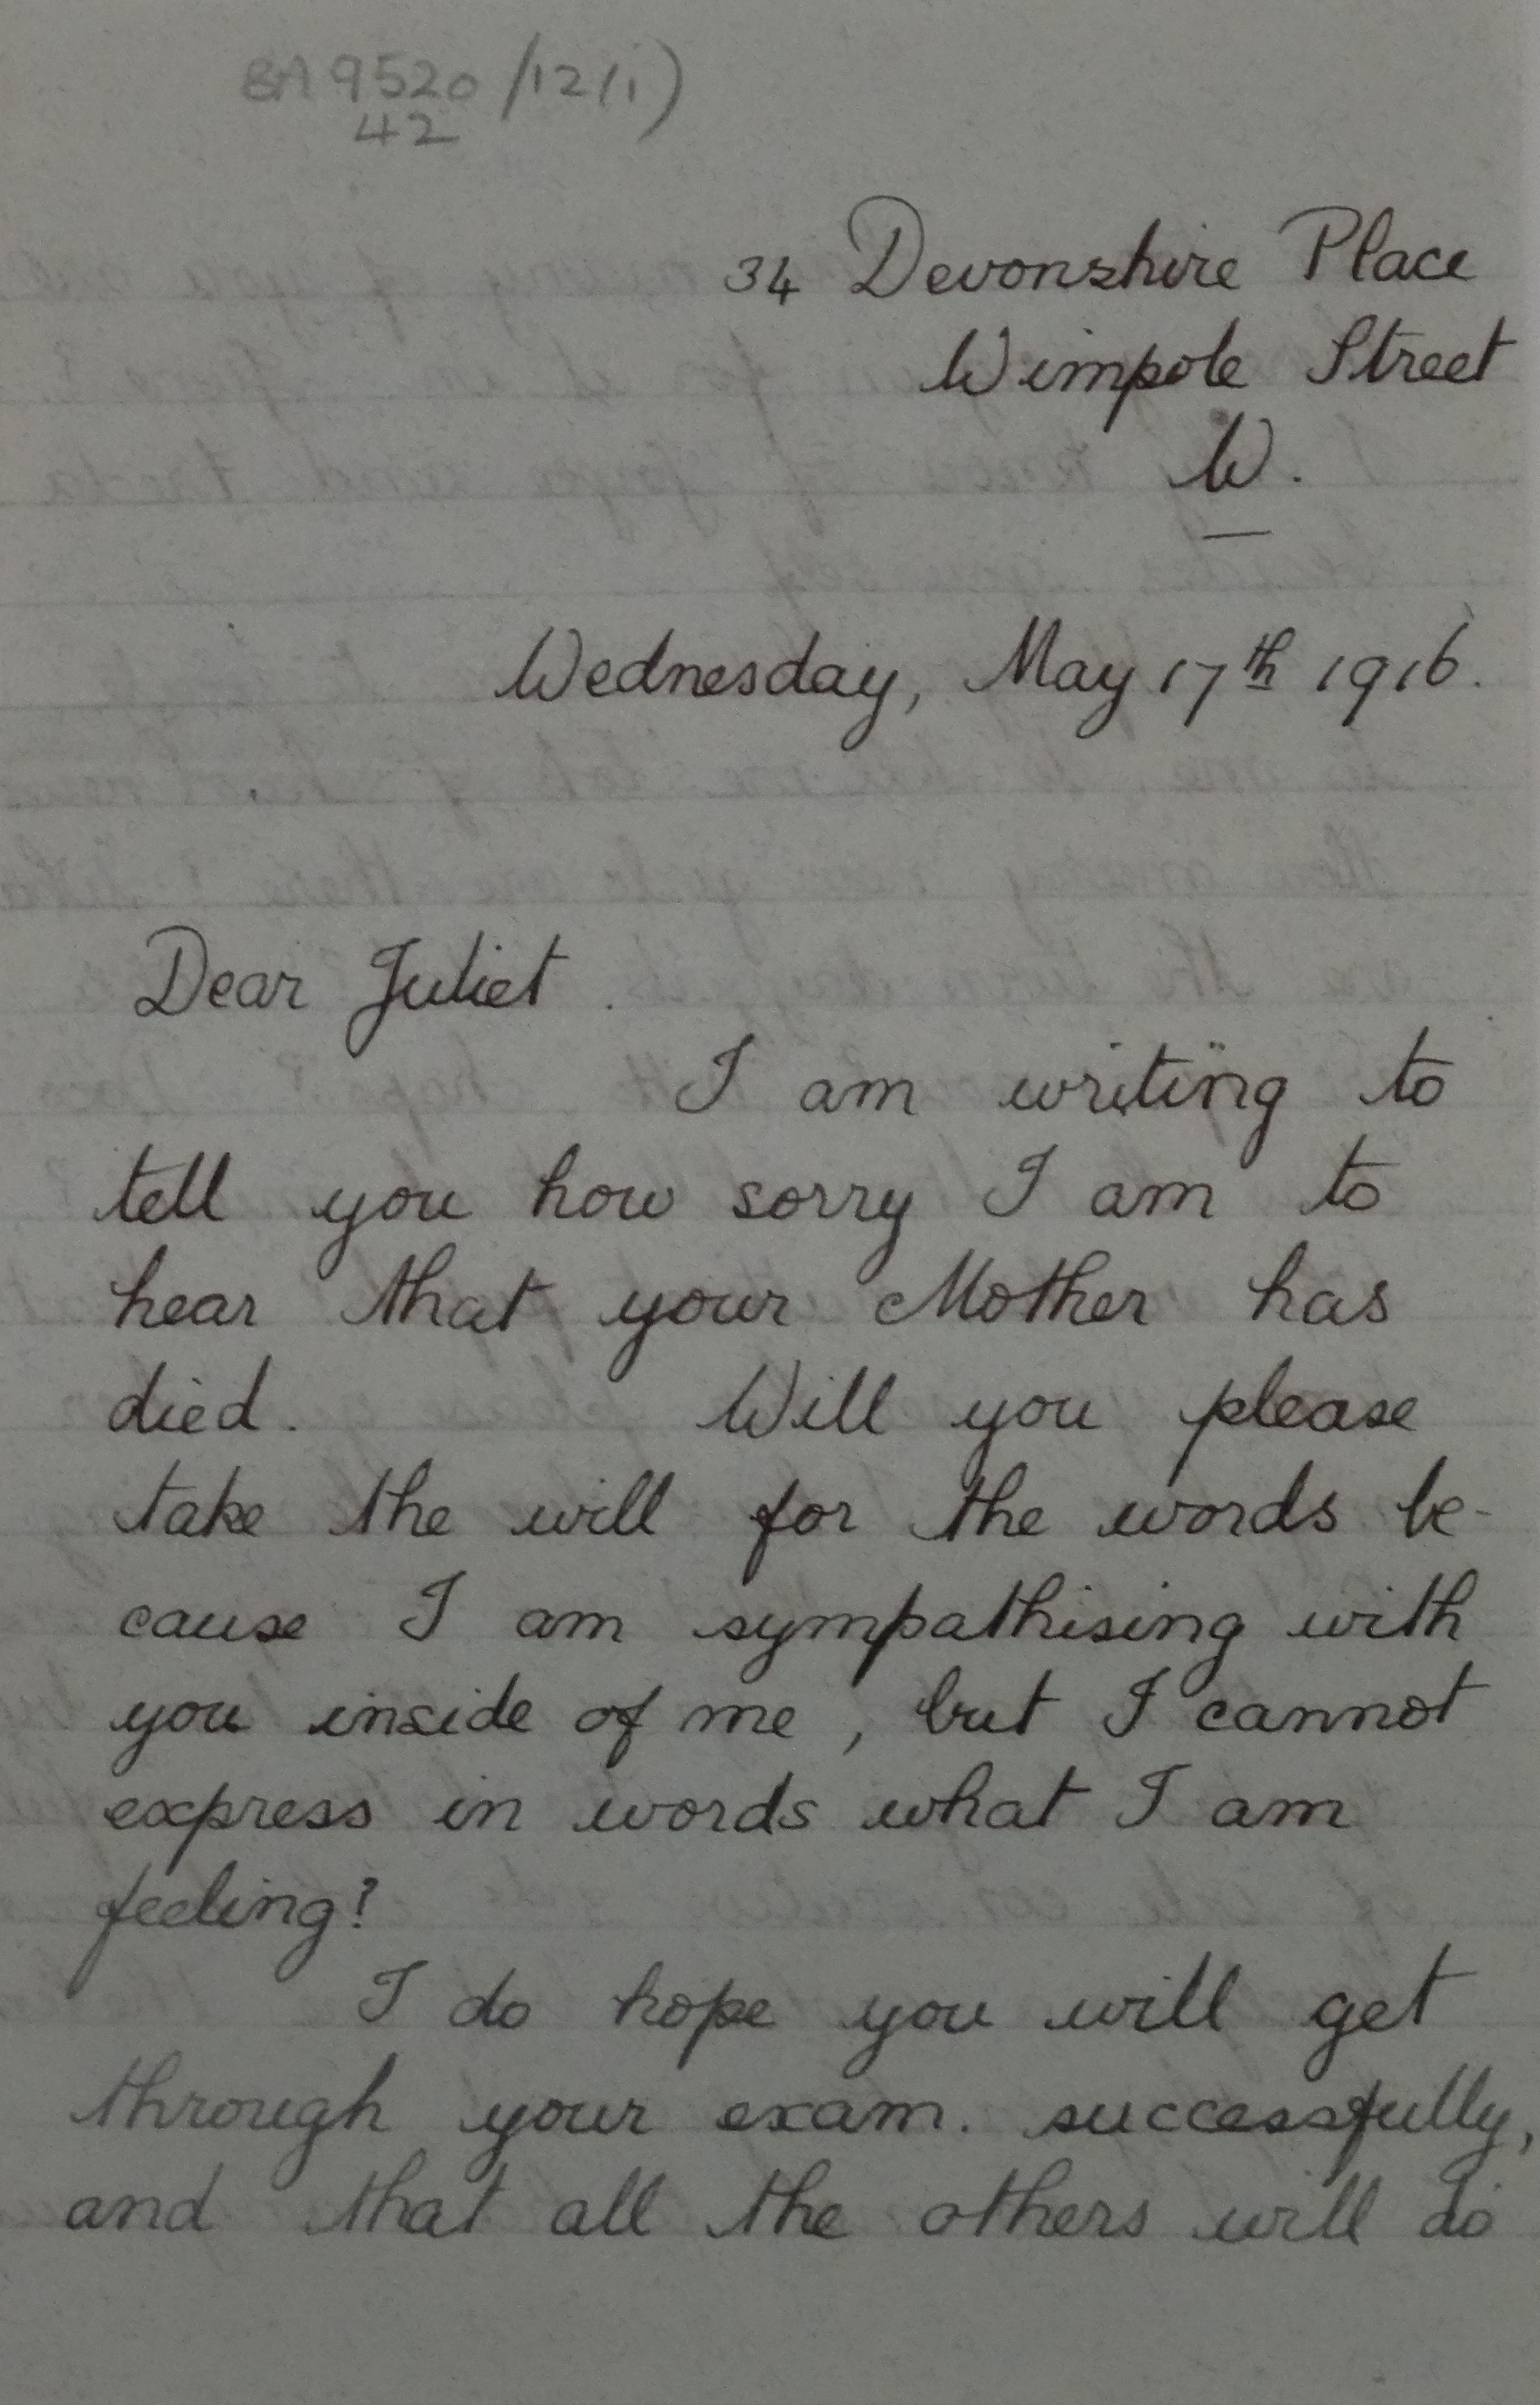 BA 9520/12(i)
42
34 Devonshire Place
Wimpole Street
W.
Wednesday, May 17th 1916.
Dear Juliet.
I am writing to
tell you how sorry I am to
hear that your Mother has
died. Will you please
take the will for the words be-
cause I am sympathising with
you inside of me, but I cannot
express in words what I am
feeling?
I do hope you will get
through your exam. successfully,
and that all the others will do